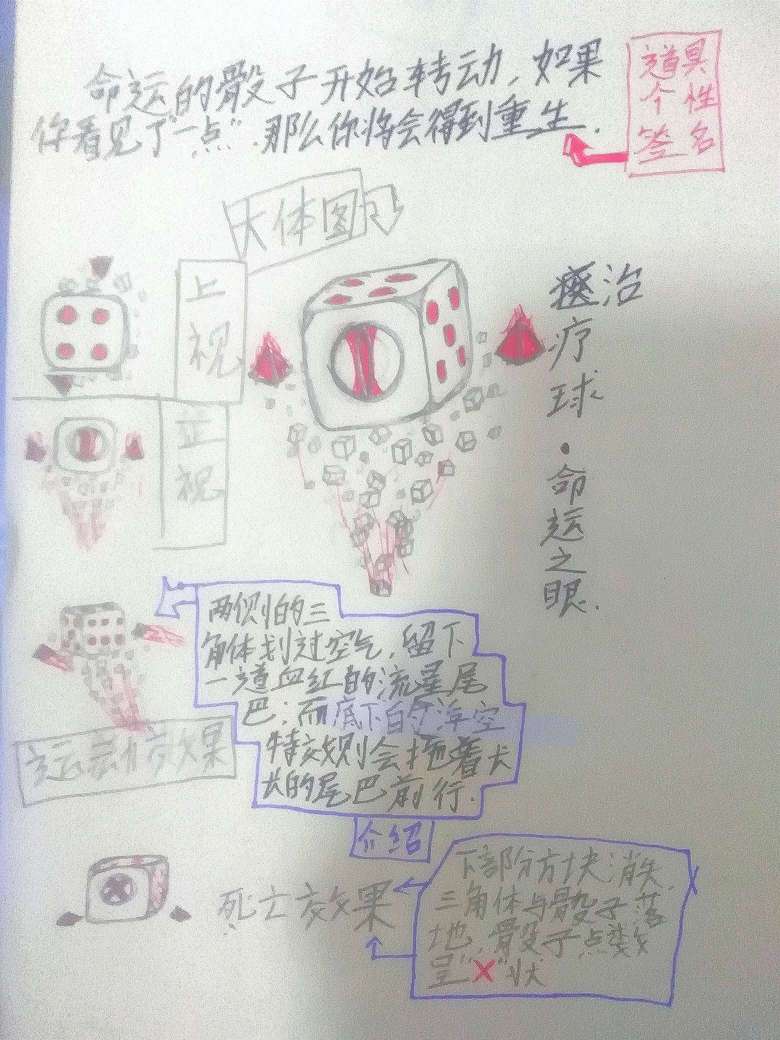 命运的骰子开始转动,如果
你看见了"一点".那么你将会得到重生.
道具
个性
签名
大体图
上视
正视
治疗球·命运之眼.
两侧的三
角体划过空气,留下
一道血红的流星尾
巴;而底下的浮空
特效则会拖着长
长的尾巴前行.
运动效果
介绍
死亡效果
下部分方块消失.
三角体与骰子落
地,骰子点数
呈"X"状